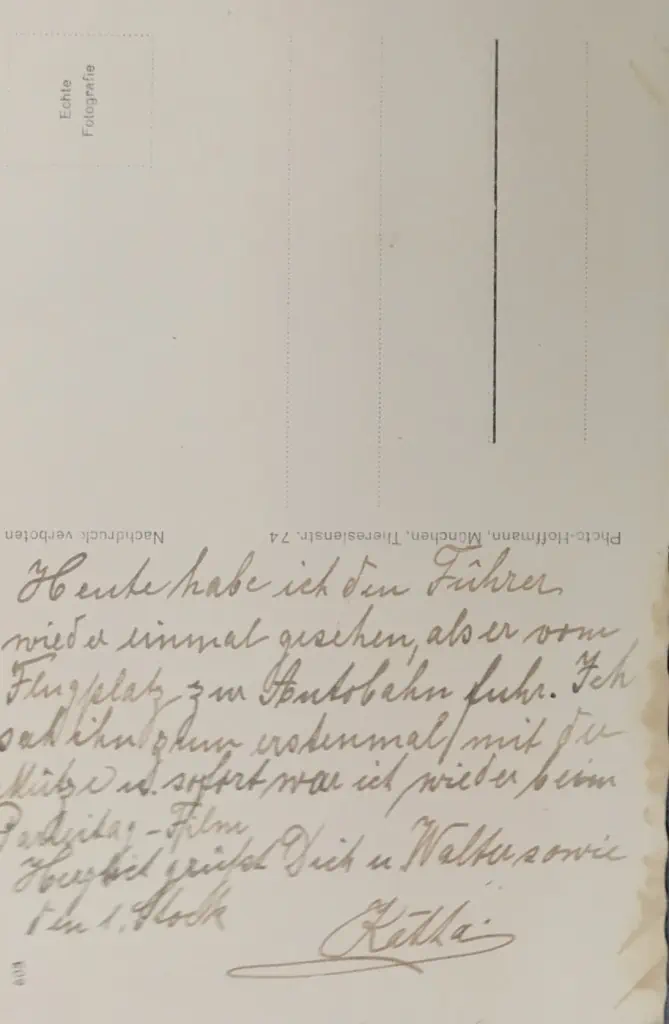 Echte
Fotografie
Nachdruck verboten
Photo-Hoffmann, München, Theresienstr. 74
Heute habe ich den Führer
wieder einmal gesehen, als er vom
Flugplatz zur Autobahn fuhr. Ich
sah ihn zum erstenmal mit der
Mütze u. sofort war ich wieder beim
Parteitag-Film
Herzlich grüßt Dich u Walter sowie
den 1. Stock
Kätha.